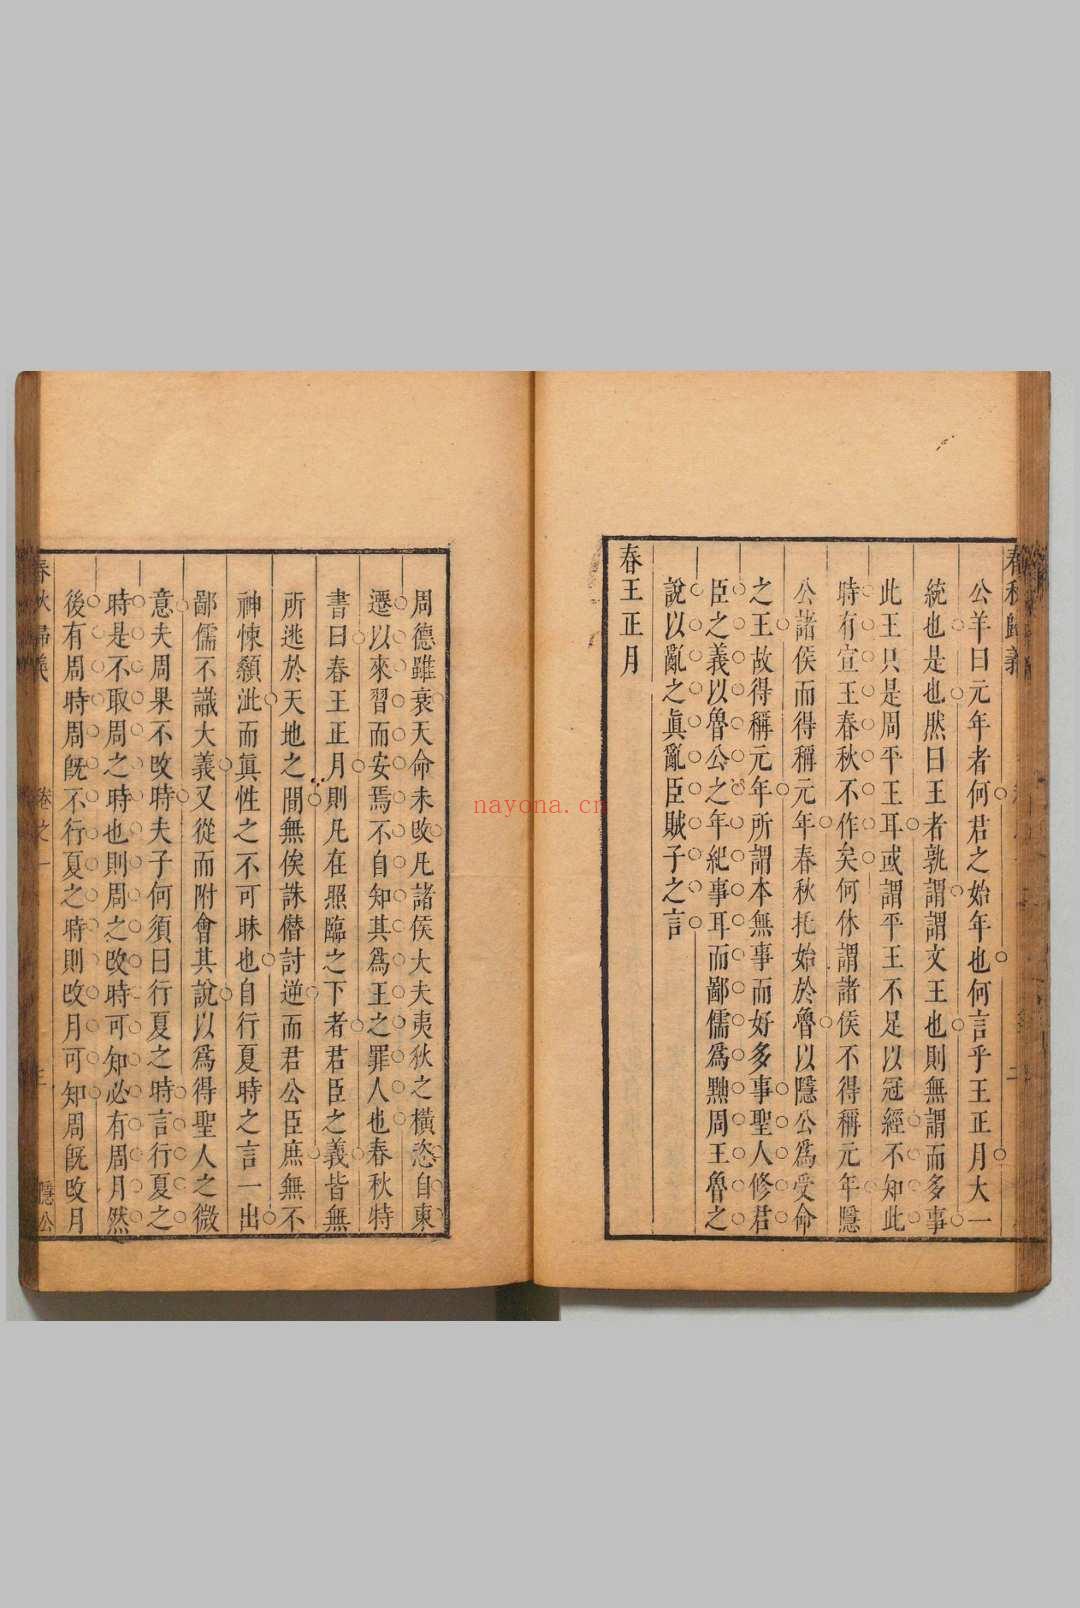 春秋歸義
公羊曰元年者何君之始年也何言乎王正月大一
統也是也然曰王者孰謂謂文王也則無謂而多事
此王只是周平王耳或謂平王不足以冠經不知此
時有宣王春秋不作矣何休謂諸侯不得稱元年隱
公諸侯而得稱元年春秋托始於魯以隱公爲受命
之王故得稱元年所謂本無事而好多事聖人修君
臣之義以魯公之年紀事耳而鄙儒爲黜周王魯之
說以亂之眞亂臣賊子之言
春王正月
周德雖衰天命未攺凡諸侯大夫夷狄之橫恣自東
遷以來習而安焉不自知其爲王之罪人也春秋特
書曰春王正月則凡在照臨之下者君臣之義皆無
所逃於天地之間無俟誅僭討逆而君公臣庶無不
神悚顙泚而眞性之不可昧也自行夏時之言一出
鄙儒不識大義又從而附會其說以爲得聖人之微
意夫周果不攺時夫子何須曰行夏之時言行夏之
時是不取周之時也則周之攺時可知必有周月然
後有周時周旣不行夏之時則攺月可知周旣攺月
春秋歸義
卷之一
三
隱公
nayona.cn